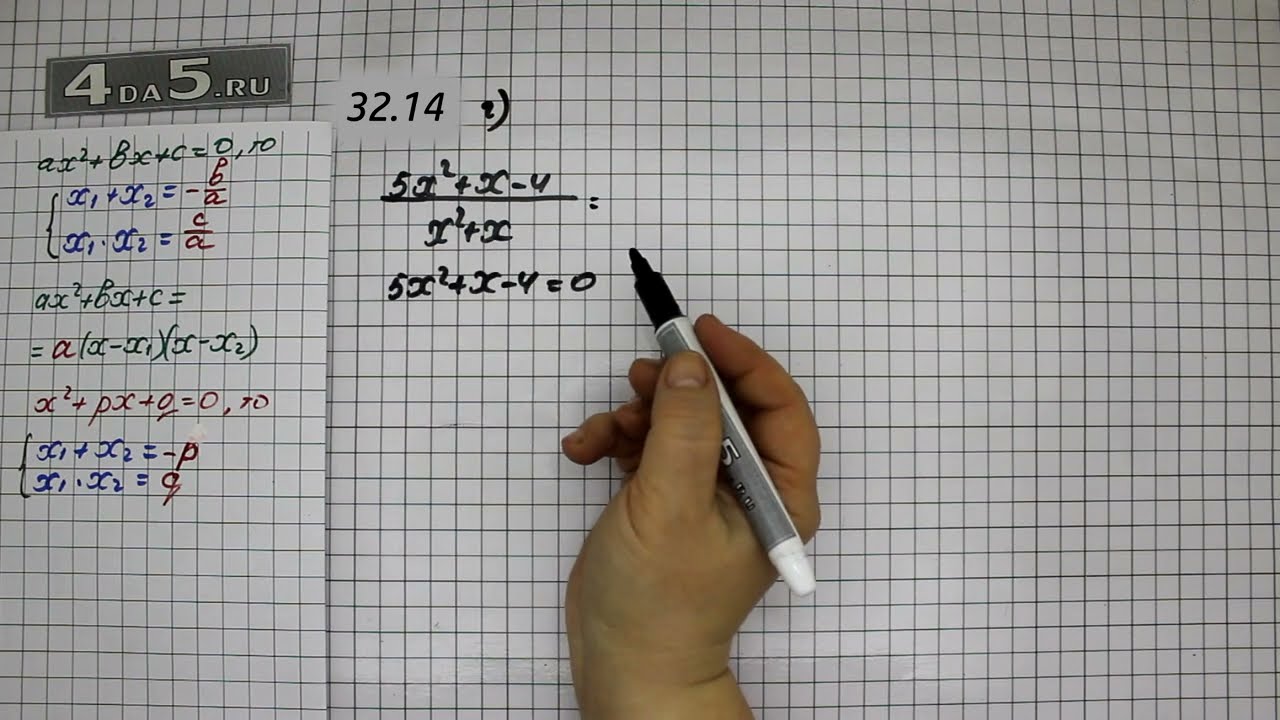 4DA5.RU
32.14 г)
ax²+bx+c=0, то
x₁+x₂=-b/a
x₁·x₂=c/a
ax²+bx+c=
=a(x-x₁)(x-x₂)
x²+px+q=0, то
x₁+x₂=-p
x₁·x₂=q
5x²+x-4
x²+x
=
5x²+x-4=0